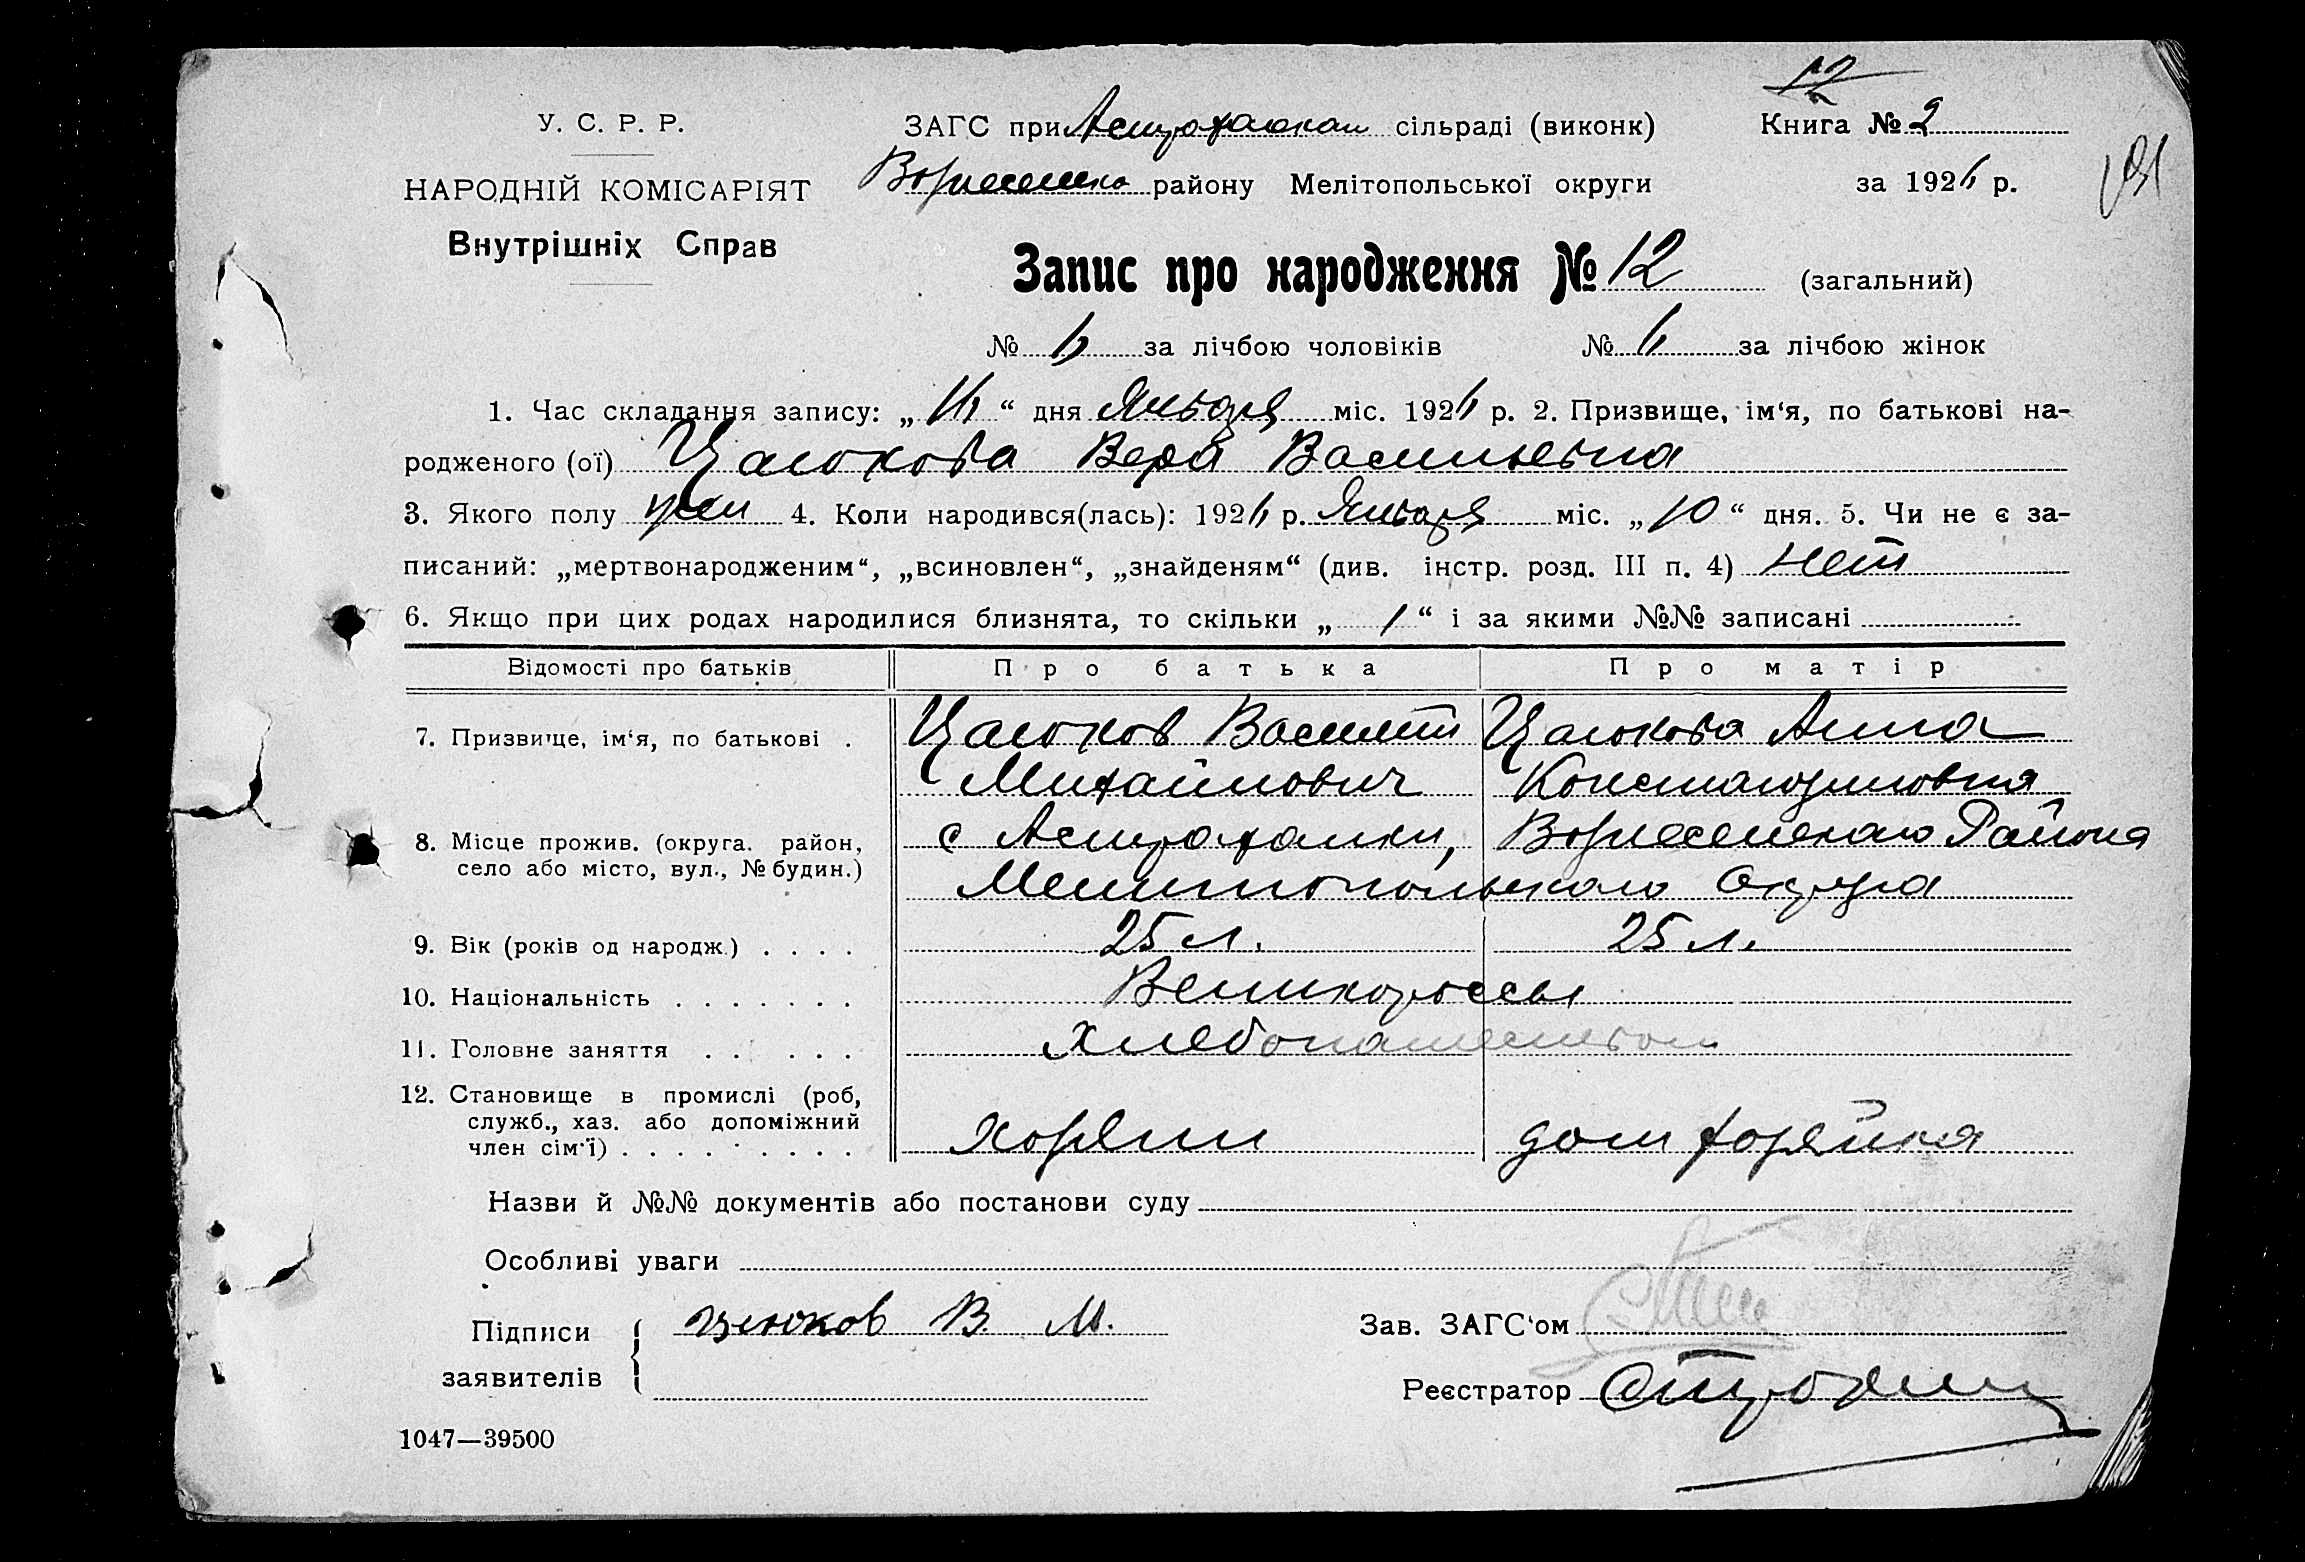 12
У. С. Р. Р.
ЗАГС при Астраханкаи сільраді (виконк)
Книга № 2
НАРОДНІЙ КОМІСАРІЯТ
Вознесенко району Мелітопольської округи
за 1926 р.
Внутрішніх Справ
Запис про народження № 12 (загальний)
№ 6 за лічбою чоловіків № 6 за лічбою жінок
1. Час складання запису: „16“ дня Января міс. 1926 р. 2. Призвище, ім'я, по батькові на-
родженого (ої) Цаюкова Вера Васильевна
3. Якого полу жен 4. Коли народився(лась): 1926 р. Января міс. „10“ дня. 5. Чи не є за-
писаний: „мертвонародженим“, „всиновлен“, „знайденям“ (див. інстр. розд. III п. 4) нет
6. Якщо при цих родах народилися близнята, то скільки „ / “ і за якими №№ записані
Відомості про батьків Про батька Про матір
7. Призвище, ім'я, по батькові . Цаюков Василий Цаюкова Анна
Михайлович Константиновна
8. Місце прожив. (округа. район, село або місто, вул., № будин.) с Астраханки, Вознесенского Района
Мелитопольского Округа
9. Вік (років од народж.) . . . . 25 л. 25 л.
10. Національність . . . . . . . Великороссы
11. Головне заняття . . . . . . Хлебопашеством
12. Становище в промислі (роб,
служб., хаз. або допоміжний
член сім'ї) . . . . . . . . . хозяин домхозяйка
Назви й №№ документів або постанови суду
Особливі уваги
Підписи заявителів В. М.
Зав. ЗАГС'ом
Реєстратор
1047—39500